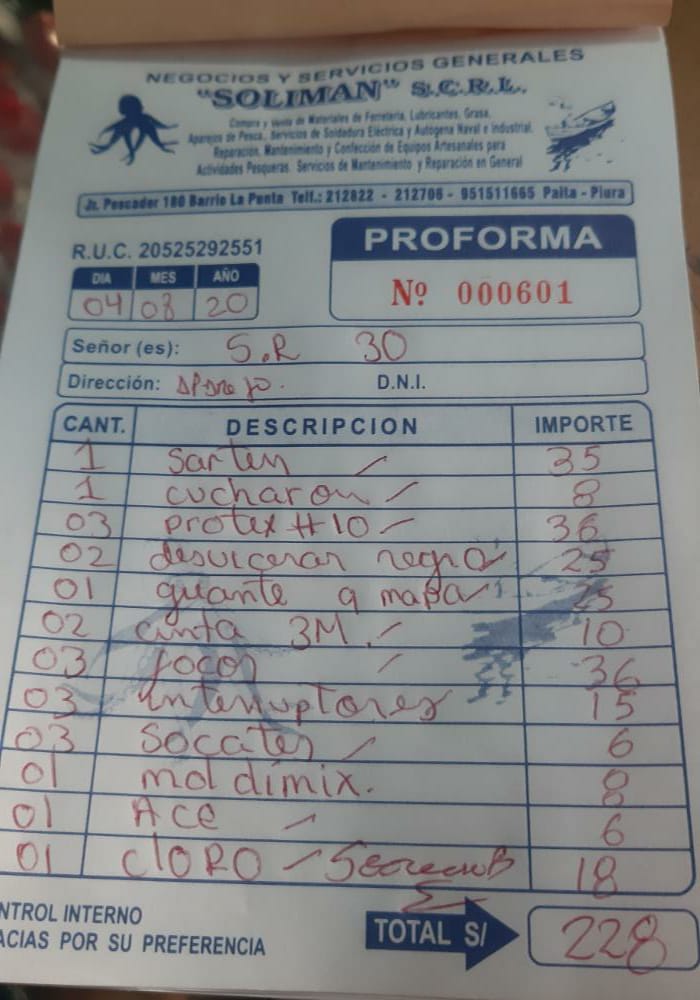 NEGOCIOS Y SERVICIOS GENERALES
"SOLIMAN" S.C.R.L.
Compra y Venta de Materiales de Ferretería, Lubricantes, Grasa,
Aparejos de Pesca, Servicios de Soldadura Eléctrica y Autógena Naval e Industrial,
Reparación, Mantenimiento y Confección de Equipos Artesanales para
Actividades Pesqueras. Servicios de Mantenimiento y Reparación en General
Jr. Pescador 180 Barrio La Punta Telf.: 212822 - 212706 - 951511665 Paita - Piura
R.U.C. 20525292551
PROFORMA
DIA MES AÑO
04 08 20
Nº 000601
Señor (es): S.R 30
Dirección: D.N.I.
CANT. DESCRIPCION IMPORTE
1 Sarten 35
1 cucharon 8
03 protex #10 36
02 negra 25
01 guante mapa 25
02 cinta 3M 10
03 focos 36
03 interruptores 15
03 Socates 6
01 moldimix. 8
01 Ace 6
01 cloro 18
NTROL INTERNO
ACIAS POR SU PREFERENCIA
TOTAL S/ 228